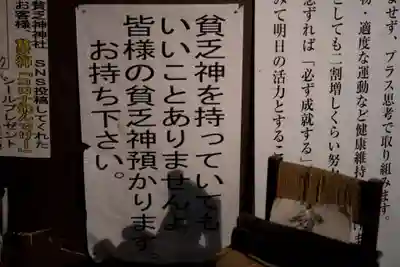 貧乏神を持っていても
いいことありませんよ
皆様の貧乏神預かります。
お持ち下さい。
ませず、プラス思考で取り組みます。
適度な運動など健康維持
としても二割増しくらい努
念ずれば「必ず成就する」
みて明日の活力とするこ
貧乏神神社
お客様
SNS投稿してくれた
シールプレゼント